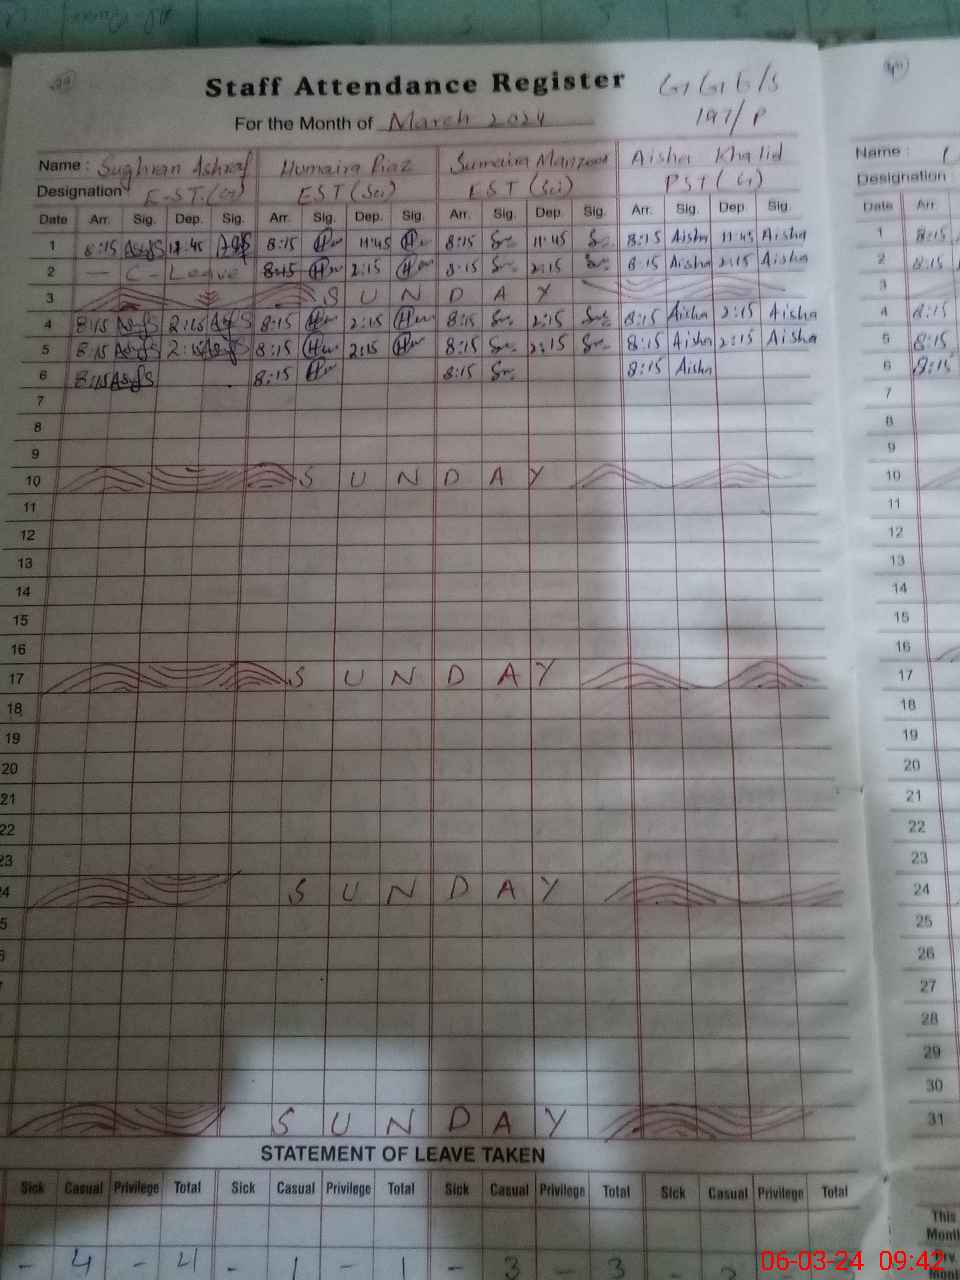 39
Staff Attendance Register
G.G.E/S
For the Month of March 2024
197/P
Name : Sughran Ashraf Humaira Riaz Sumaira Manzoor Aisha Khalid
Designation E.S.T.(G) EST (Sci) EST (Sci) PST (G)
Date Arr. Sig. Dep. Sig. Arr. Sig. Dep. Sig. Arr. Sig. Dep. Sig. Arr. Sig. Dep. Sig.
1 8:15 11:45 8:15 11:45 8:15 11:45 8:15 Aisha 11:45 Aisha
2 — C - Leave 8:15 2:15 8:15 2:15 8:15 Aisha 2:15 Aisha
3 S U N D A Y
4 8:15 2:15 8:15 2:15 8:15 2:15 8:15 Aisha 2:15 Aisha
5 8:15 2:15 8:15 2:15 8:15 2:15 8:15 Aisha 2:15 Aisha
6 8:15 8:15 8:15 8:15 Aisha
7
8
9
10 S U N D A Y
11
12
13
14
15
16
17 S U N D A Y
18
19
20
21
22
23
24 S U N D A Y
5
S U N D A Y
STATEMENT OF LEAVE TAKEN
Sick Casual Privilege Total Sick Casual Privilege Total Sick Casual Privilege Total Sick Casual Privilege Total
- 4 - 4 - 1 - 1 - 3 - 3 -
Name :
Designation :
Date Arr.
1 8:15
2 8:15
3
4 8:15
5 8:15
6 8:15
7
8
9
10
11
12
13
14
15
16
17
18
19
20
21
22
23
24
25
26
27
28
29
30
31
This
Month
06-03-24 09:42